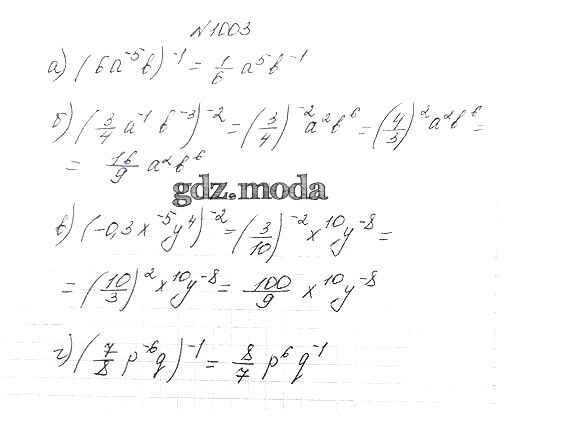 №1003
а) (6a⁻⁵b)⁻¹ = 1/6 a⁵b⁻¹
б) (3/4 a⁻¹ b⁻³)⁻² = (3/4)⁻² a²b⁶ = (4/3)² a²b⁶ =
= 16/9 a²b⁶
gdz.moda
в) (-0,3x⁻⁵y⁴)⁻² = (3/10)⁻² x¹⁰y⁻⁸ =
= (10/3)² x¹⁰y⁻⁸ = 100/9 x¹⁰y⁻⁸
г) (7/8 p⁻⁶q)⁻¹ = 8/7 p⁶q⁻¹